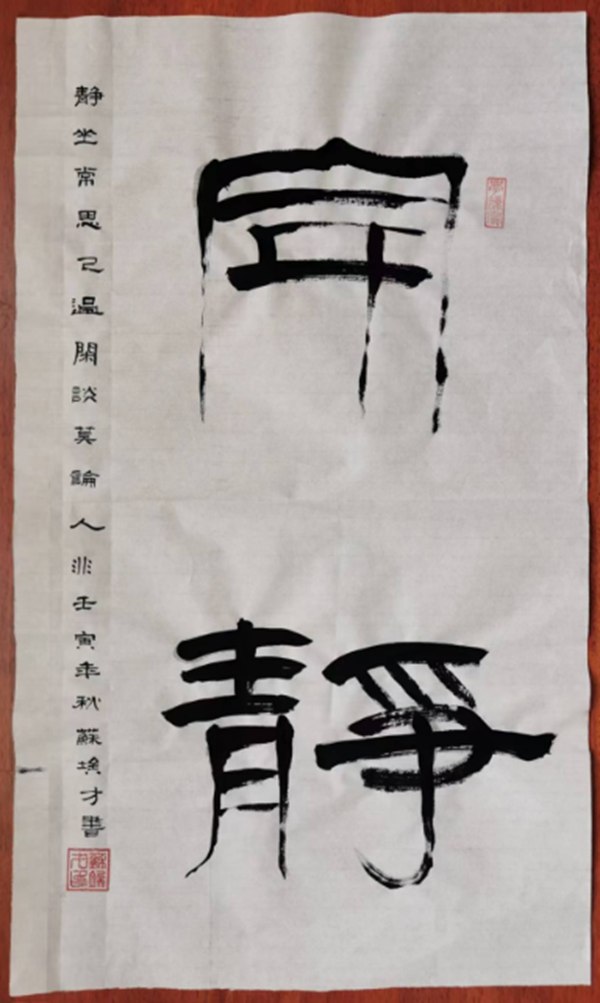 靜
静坐常思己過閑談莫論人非壬寅年秋蘇才書